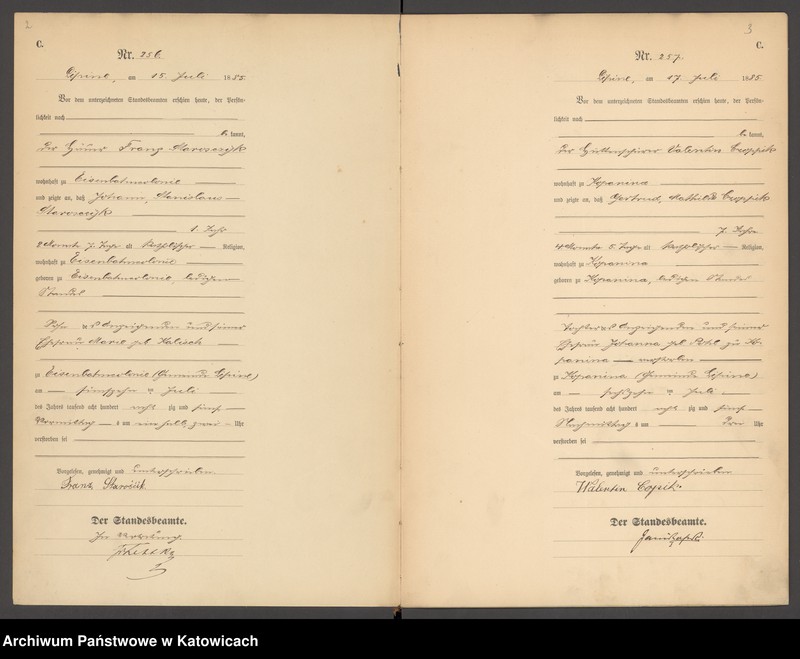 2
C.
Nr. 256.
Lipine, am 15. Juli 1885.
Vor dem unterzeichneten Standesbeamten erschien heute, der Persön-
lichkeit nach
kannt,
der Häuer Franz
wohnhaft zu Eisenbahncolonie
und zeigte an, daß Johann, Stanislaus
1. Jahr
2 Monate 7 Tage alt katholischer Religion,
wohnhaft zu Eisenbahncolonie
geboren zu Eisenbahncolonie, ledigen
Standes
Sohn des Anzeigenden und seiner
Ehefrau Marie geb.
zu Eisenbahncolonie (Gemeinde Lipine)
am fünfzehn ten Juli
des Jahres tausend acht hundert acht zig und fünf
Vormittags um ein halb zwei Uhr
verstorben sei
Vorgelesen, genehmigt und unterschrieben
Franz
Der Standesbeamte.
In Vertretung
3
C.
Nr. 257.
Lipine, am 17. Juli 1885
Vor dem unterzeichneten Standesbeamten erschien heute, der Persön-
lichkeit nach
kannt,
der Valentin
wohnhaft zu Kopanina
und zeigte an, daß Gertrud, Mathilde
7 Jahre
4 Monate 5 Tage alt katholischer Religion,
wohnhaft zu Kopanina
geboren zu Kopanina, ledigen Standes
Tochter des Anzeigenden und seiner
Ehefrau Johanna geb. zu Ko-
panina
zu Kopanina (Gemeinde Lipine)
am sechzehn ten Juli
des Jahres tausend acht hundert acht zig und fünf
Nachmittags um Uhr
verstorben sei
Vorgelesen, genehmigt und unterschrieben
Walenten
Der Standesbeamte.
Archiwum Państwowe w Katowicach